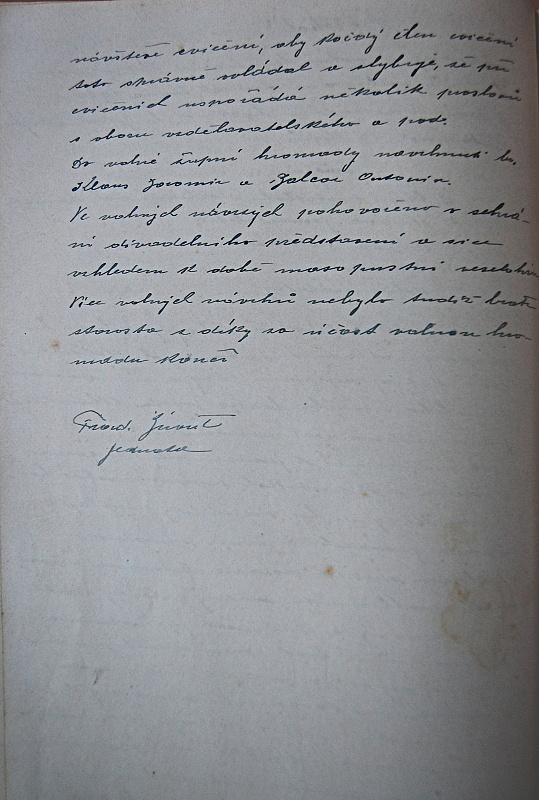 návštěvě cvičení, aby každý člen cvičení
toto správně ovládal a slybuje, že při
cvičeních uspořádá několik proslovů
s oboru vzdělavatelského a pod.
Do valné župní hromady navrhnuti br.
Klaus Jaromír a Antonín.
Ve volných návrzích pohovořeno o sehrá-
ní divadelního představení a sice
vzhledem k době masopustní veselohru
Více volných návrhů nebylo tudíž bratr
starosta s díky za účast valnou hro-
madu končí
Frant.
jednatel